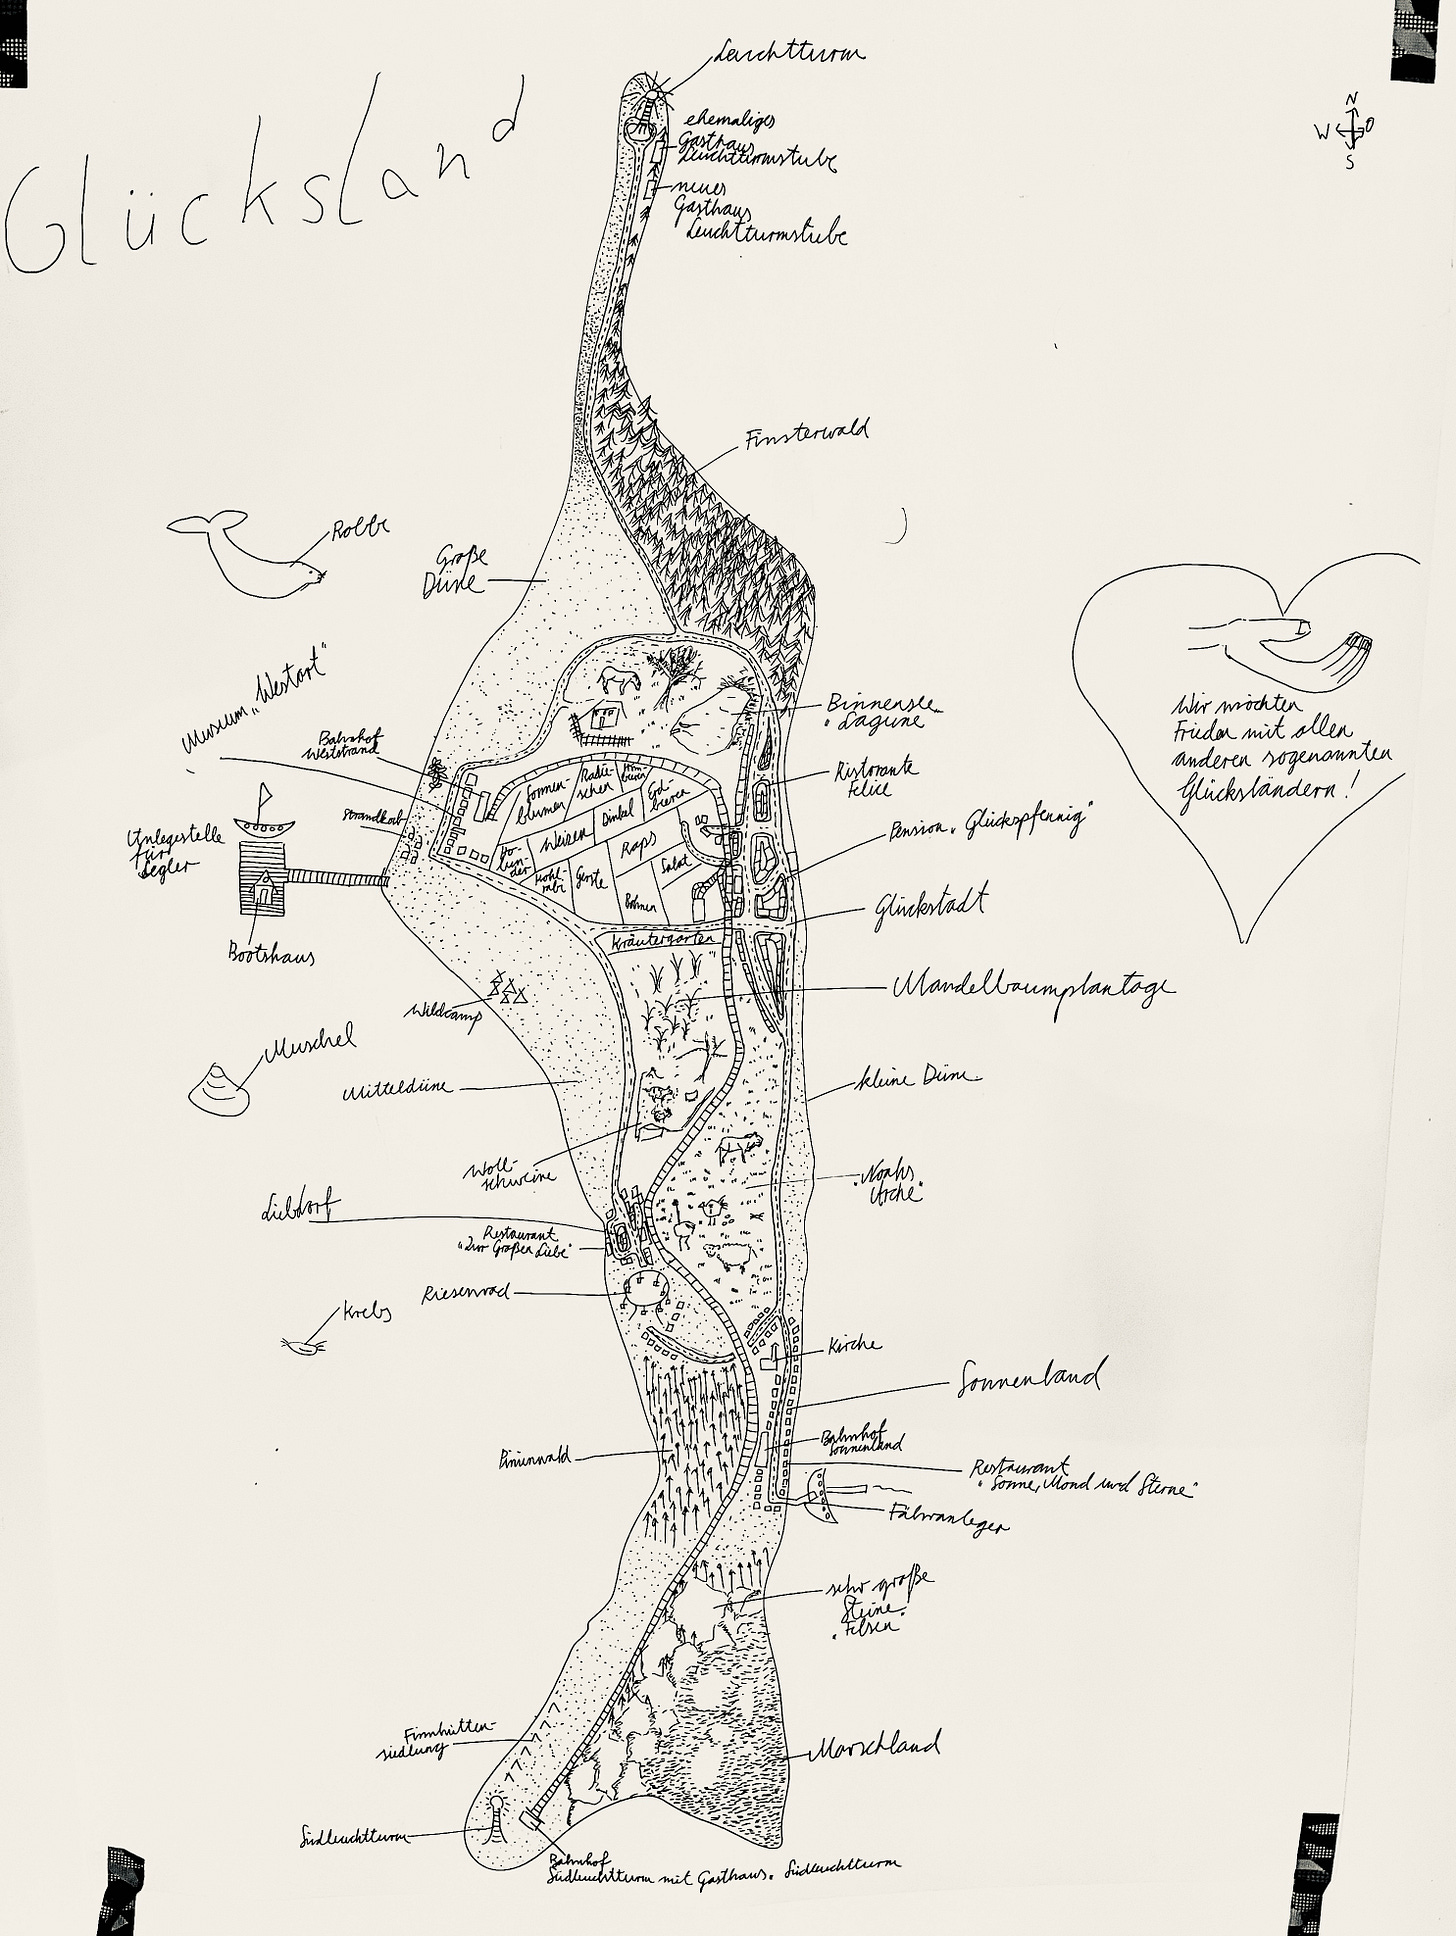 Glücksland
Leuchtturm
ehemaliges
Gasthaus
Leuchtturmstube
neues
Gasthaus
Leuchtturmstube
N
W O
S
Finsterwald
Robbe
Große
Düne
Museum „Westort"
Bahnhof
Weststrand
Strandkorb
Anlegestelle
für
Segler
Bootshaus
Binnensee
"Lagune
Ristorante
Felice
Pension „Glückspfennig"
Glückstadt
Sonnen-
blumen
Radie-
schen
Him-
beeren
Erd-
beeren
Weizen
Dinkel
Raps
Salat
Ho-
lun-
der
Kohl-
rabi
Gerste
Bohnen
Kräutergarten
Wir möchten
Frieden mit allen
anderen sogenannten
Glücksländern!
Mandelbaumplantage
Wildcamp
Muschel
Mitteldüne
kleine Düne
Woll-
schweine
"Noahs
Arche"
Liebdorf
Restaurant
"Zur Großen Liebe"
Riesenrad
Krebs
Kirche
Sonnenland
Pinienwald
Bahnhof
Sonnenland
Restaurant
"Sonne, Mond und Sterne"
Fähranleger
sehr große
Steine
"Felsen"
Finnhütten-
siedlung
Marschland
Südleuchtturm
Bahnhof
Südleuchtturm mit Gasthaus „Südleuchtturm